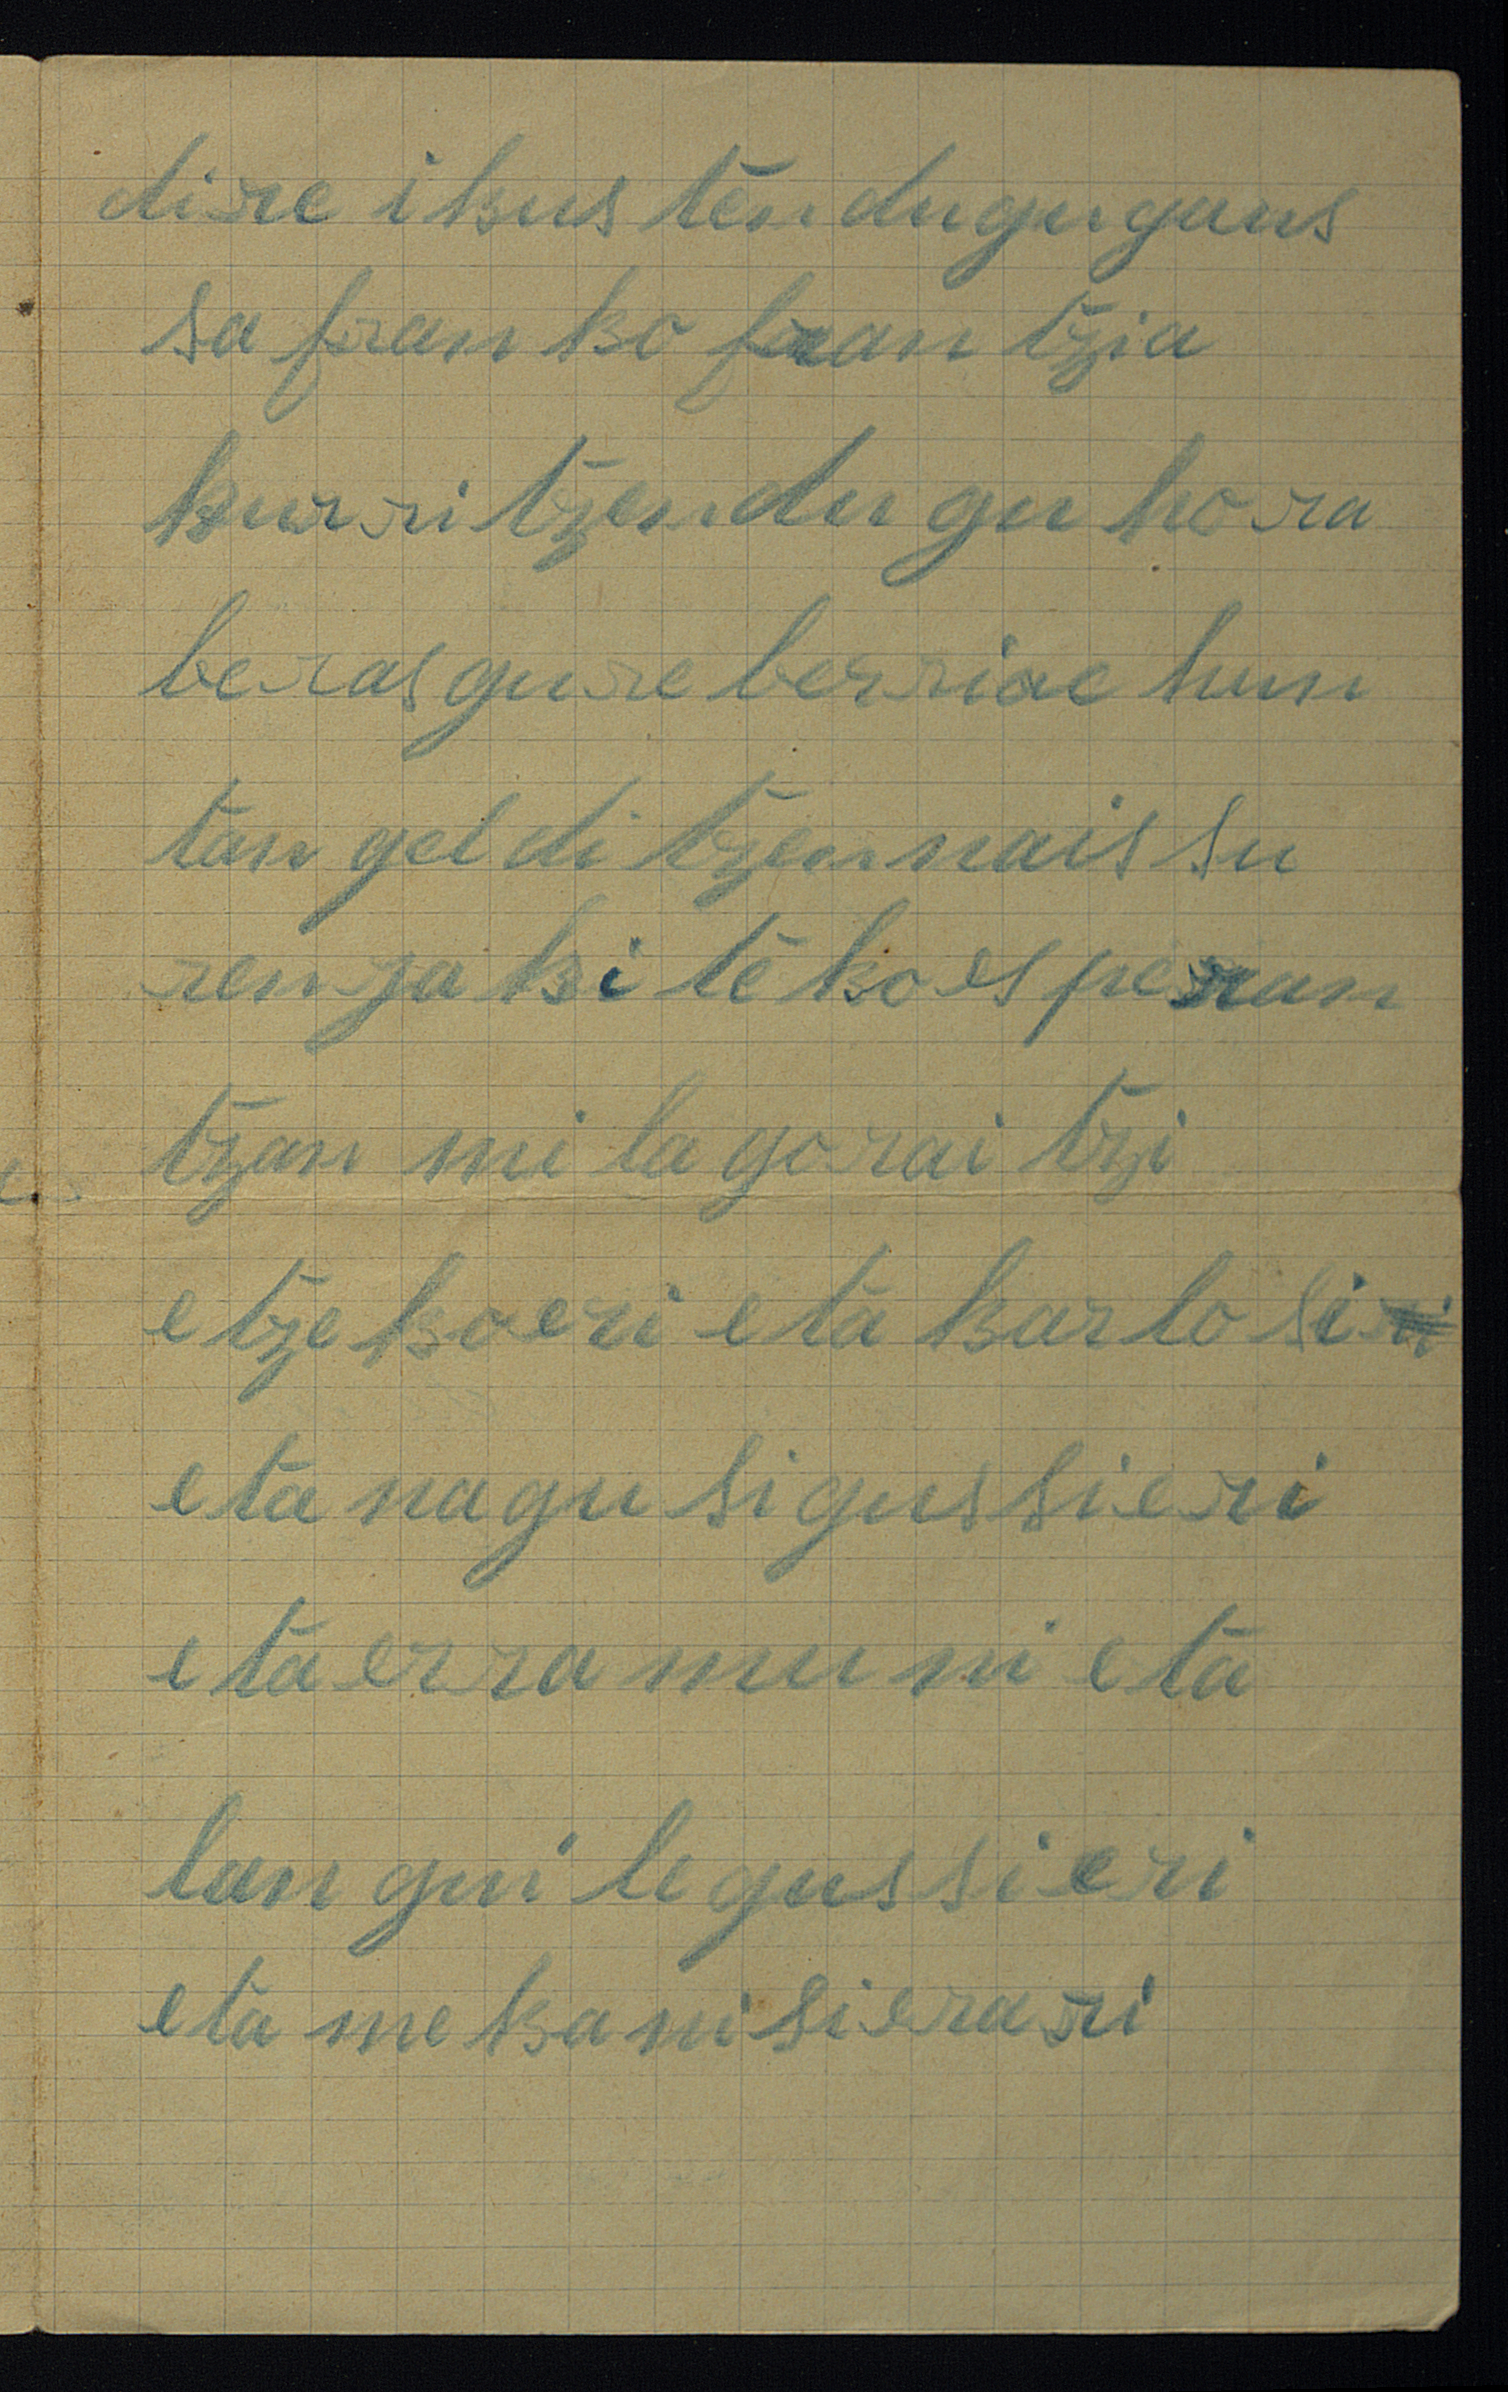 dire ikus tendugu gaus
sa franko frantzia
kurri tzendu gu hora
beras gure berriac hun
tan geldi tzennais su
ren jakiteko esperan
tzan mila gorai tzi
etzekoeri eta karlosi
eta nagusi gussieri
eta erramuni eta
langile gussieri
eta mekanisierari